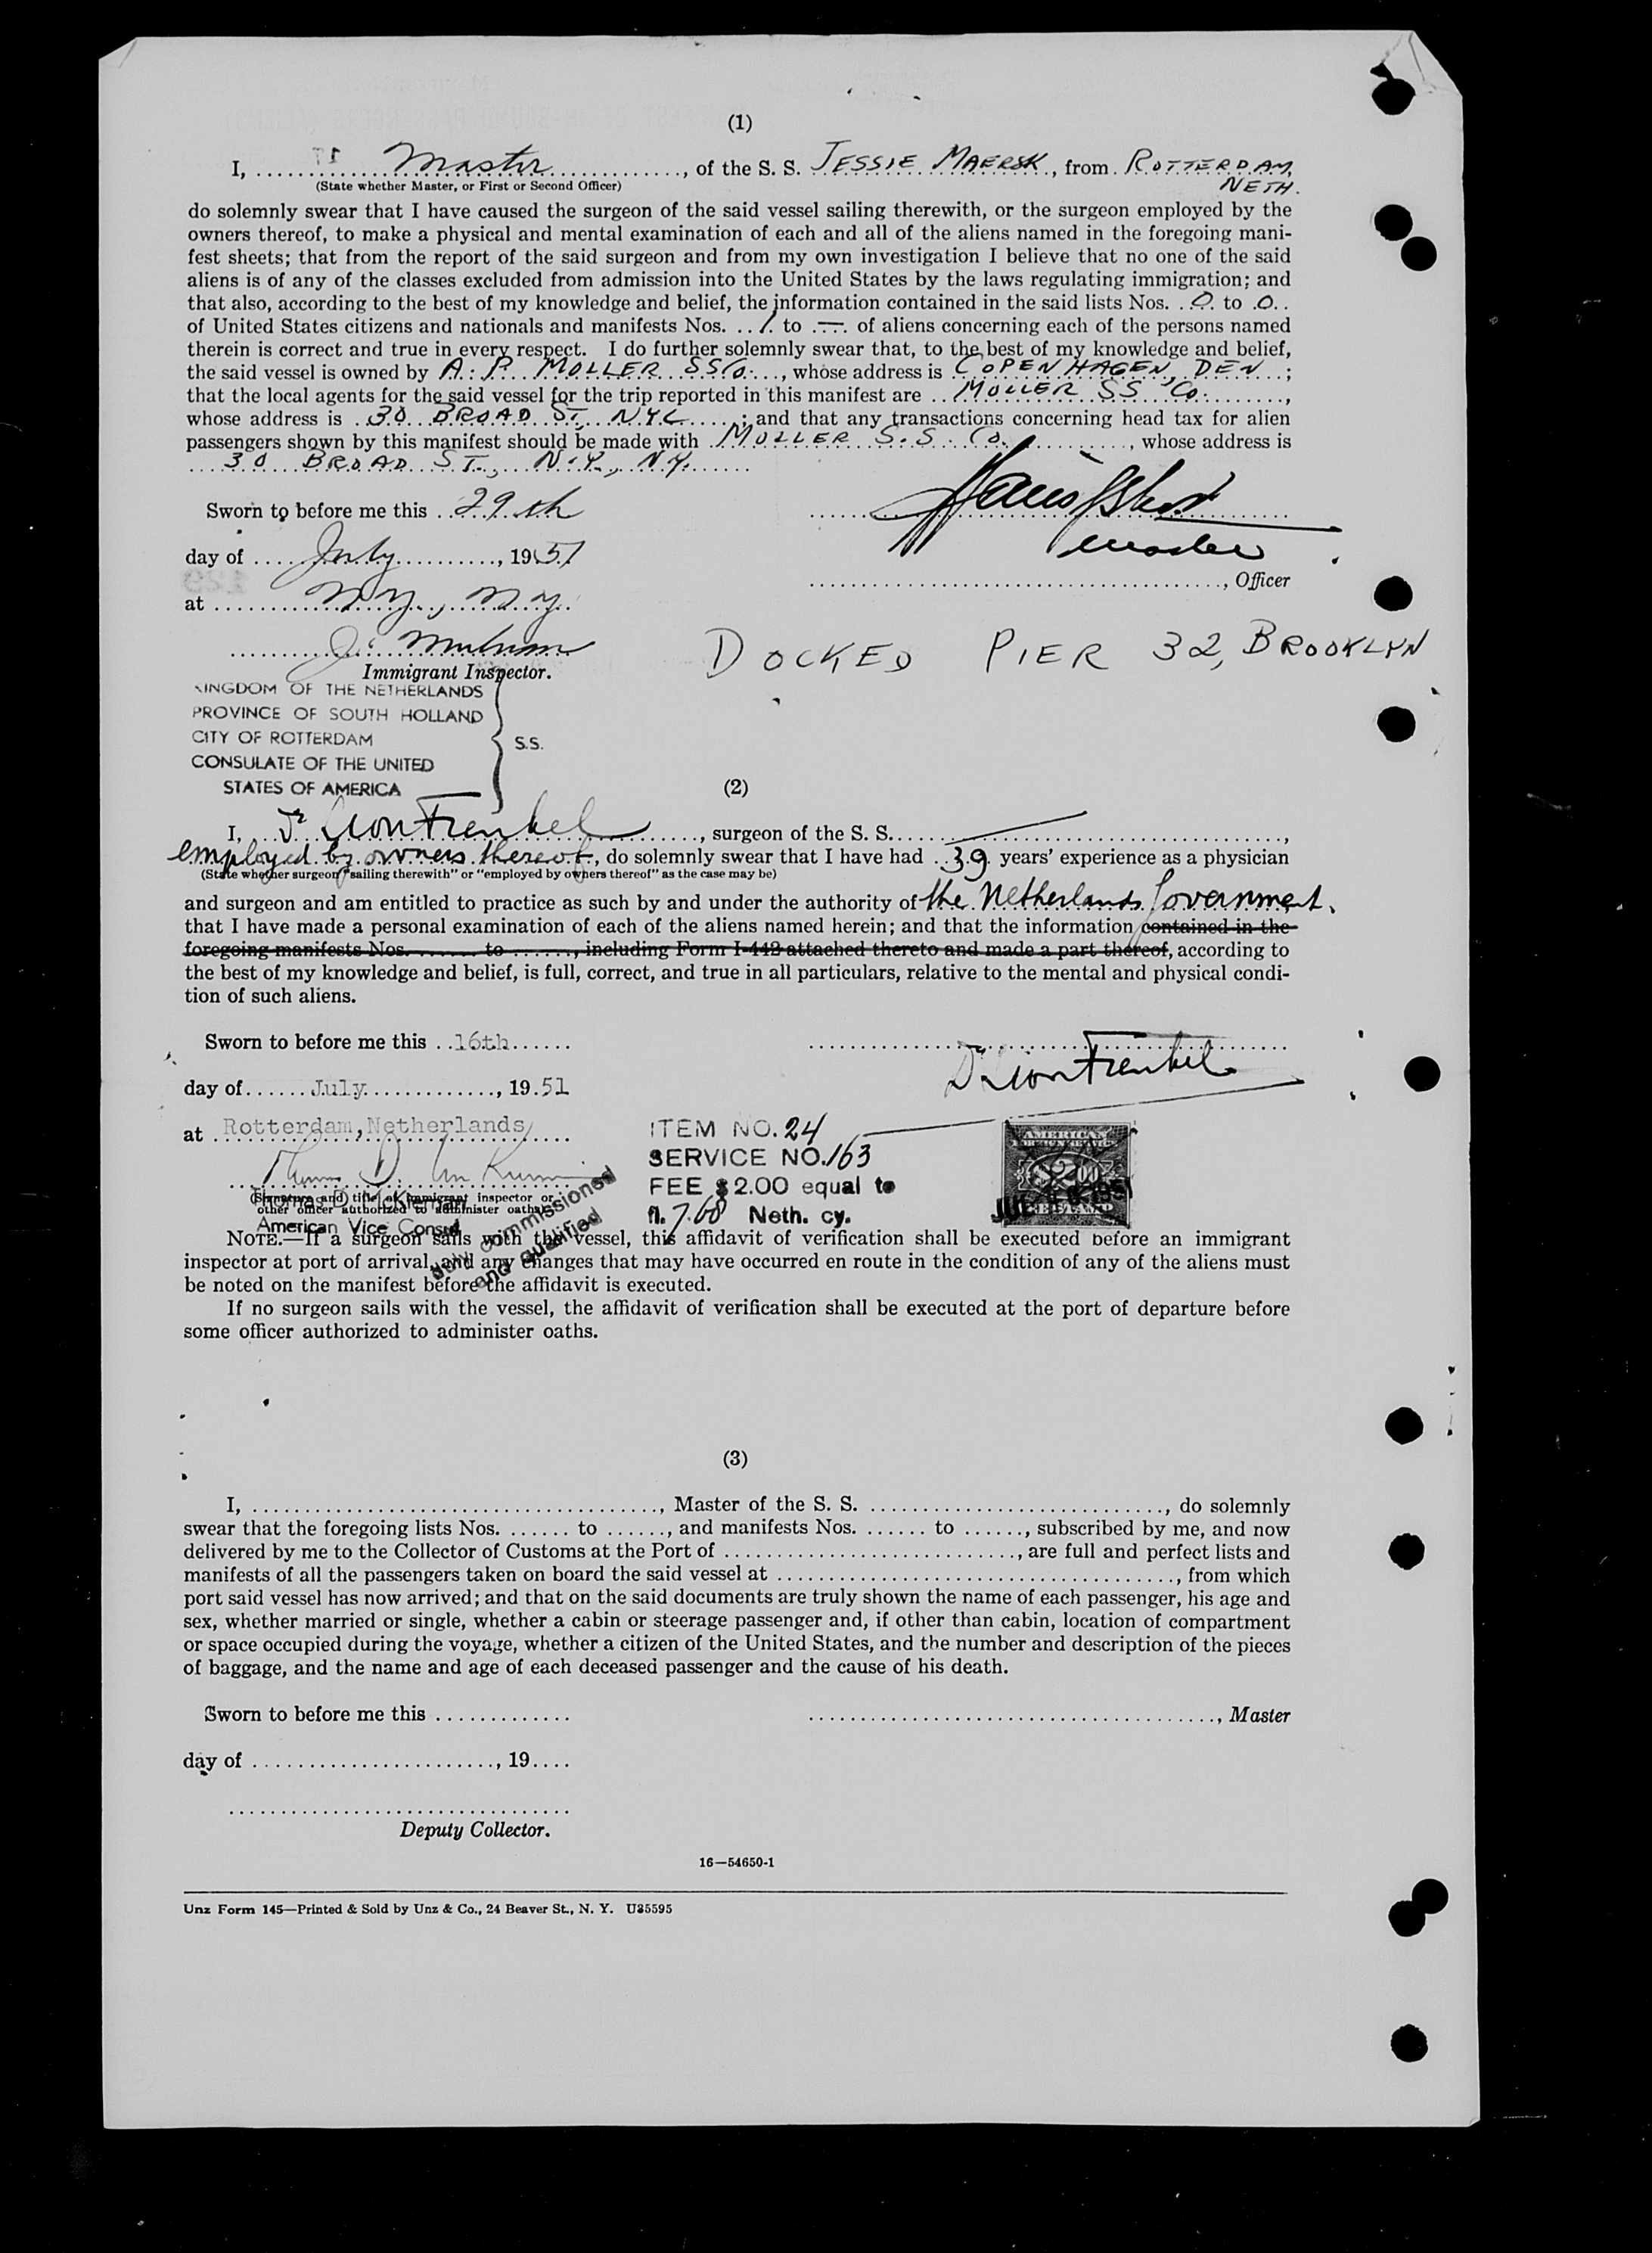 (1)
I, Master, of the S. S. JESSIE MAERSK, from ROTTERDAM, NETH.
(State whether Master, or First or Second Officer)
do solemnly swear that I have caused the surgeon of the said vessel sailing therewith, or the surgeon employed by the
owners thereof, to make a physical and mental examination of each and all of the aliens named in the foregoing mani-
fest sheets; that from the report of the said surgeon and from my own investigation I believe that no one of the said
aliens is of any of the classes excluded from admission into the United States by the laws regulating immigration; and
that also, according to the best of my knowledge and belief, the information contained in the said lists Nos. 0 to 0
of United States citizens and nationals and manifests Nos. 1 to — of aliens concerning each of the persons named
therein is correct and true in every respect. I do further solemnly swear that, to the best of my knowledge and belief,
the said vessel is owned by A. P. MOLLER SS Co., whose address is COPENHAGEN, DEN;
that the local agents for the said vessel for the trip reported in this manifest are MOLLER SS Co.,
whose address is 30 BROAD ST, NYC; and that any transactions concerning head tax for alien
passengers shown by this manifest should be made with MOLLER S.S. Co., whose address is
30 BROAD ST., N.Y., NY.
Sworn to before me this 29th
day of July, 1951
master
, Officer
at N.Y., N.Y.
Immigrant Inspector.
DOCKED PIER 32, BROOKLYN
KINGDOM OF THE NETHERLANDS
PROVINCE OF SOUTH HOLLAND
CITY OF ROTTERDAM
CONSULATE OF THE UNITED
STATES OF AMERICA
S.S.
(2)
I, Dr Leon Frenkel, surgeon of the S. S. ,
employed by owners thereof, do solemnly swear that I have had 39 years' experience as a physician
(State whether surgeon "sailing therewith" or "employed by owners thereof" as the case may be)
and surgeon and am entitled to practice as such by and under the authority of the Netherlands Government.
that I have made a personal examination of each of the aliens named herein; and that the information contained in the
foregoing manifests Nos. ...... to ......, including Form I-442 attached thereto and made a part thereof, according to
the best of my knowledge and belief, is full, correct, and true in all particulars, relative to the mental and physical condi-
tion of such aliens.
Sworn to before me this 16th
Dr Leon Frenkel
day of July, 19 51
at Rotterdam, Netherlands
ITEM NO. 24
SERVICE NO. 163
FEE $2.00 equal to
fl. 7.68 Neth. cy.
AMERICAN
$2.00
JUL 1951
(Signature and title of immigrant inspector or
other officer authorized to administer oaths)
American Vice Consul
duly commissioned
and qualified
NOTE.—If a surgeon sails with the vessel, this affidavit of verification shall be executed before an immigrant
inspector at port of arrival, and any changes that may have occurred en route in the condition of any of the aliens must
be noted on the manifest before the affidavit is executed.
If no surgeon sails with the vessel, the affidavit of verification shall be executed at the port of departure before
some officer authorized to administer oaths.
(3)
I, ......, Master of the S. S. ......, do solemnly
swear that the foregoing lists Nos. ...... to ......, and manifests Nos. ...... to ......, subscribed by me, and now
delivered by me to the Collector of Customs at the Port of ......, are full and perfect lists and
manifests of all the passengers taken on board the said vessel at ......, from which
port said vessel has now arrived; and that on the said documents are truly shown the name of each passenger, his age and
sex, whether married or single, whether a cabin or steerage passenger and, if other than cabin, location of compartment
or space occupied during the voyage, whether a citizen of the United States, and the number and description of the pieces
of baggage, and the name and age of each deceased passenger and the cause of his death.
Sworn to before me this ......
......, Master
day of ......, 19....
Deputy Collector.
16—54650-1
Unz Form 145—Printed & Sold by Unz & Co., 24 Beaver St., N. Y. U35595